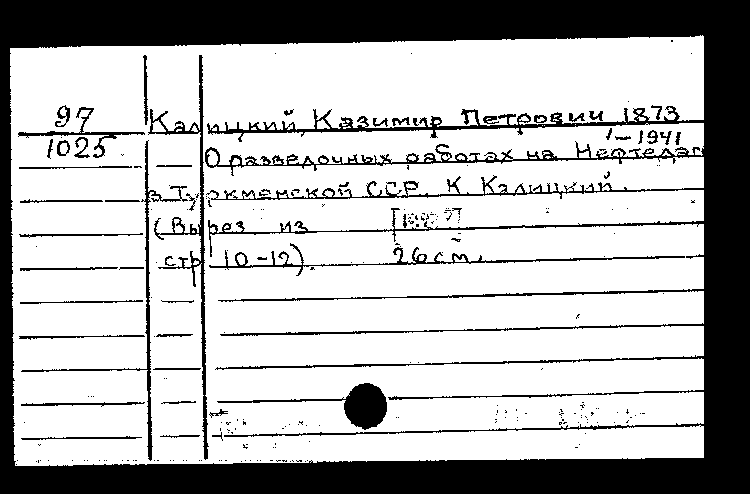 97
1025
Калицкий, Казимир Петрович 1873
-1941
О разведочных работах на Нефтедаг
в Туркменской ССР. К. Калицкий.
(Вырез из
стр 10-12). 26 см.